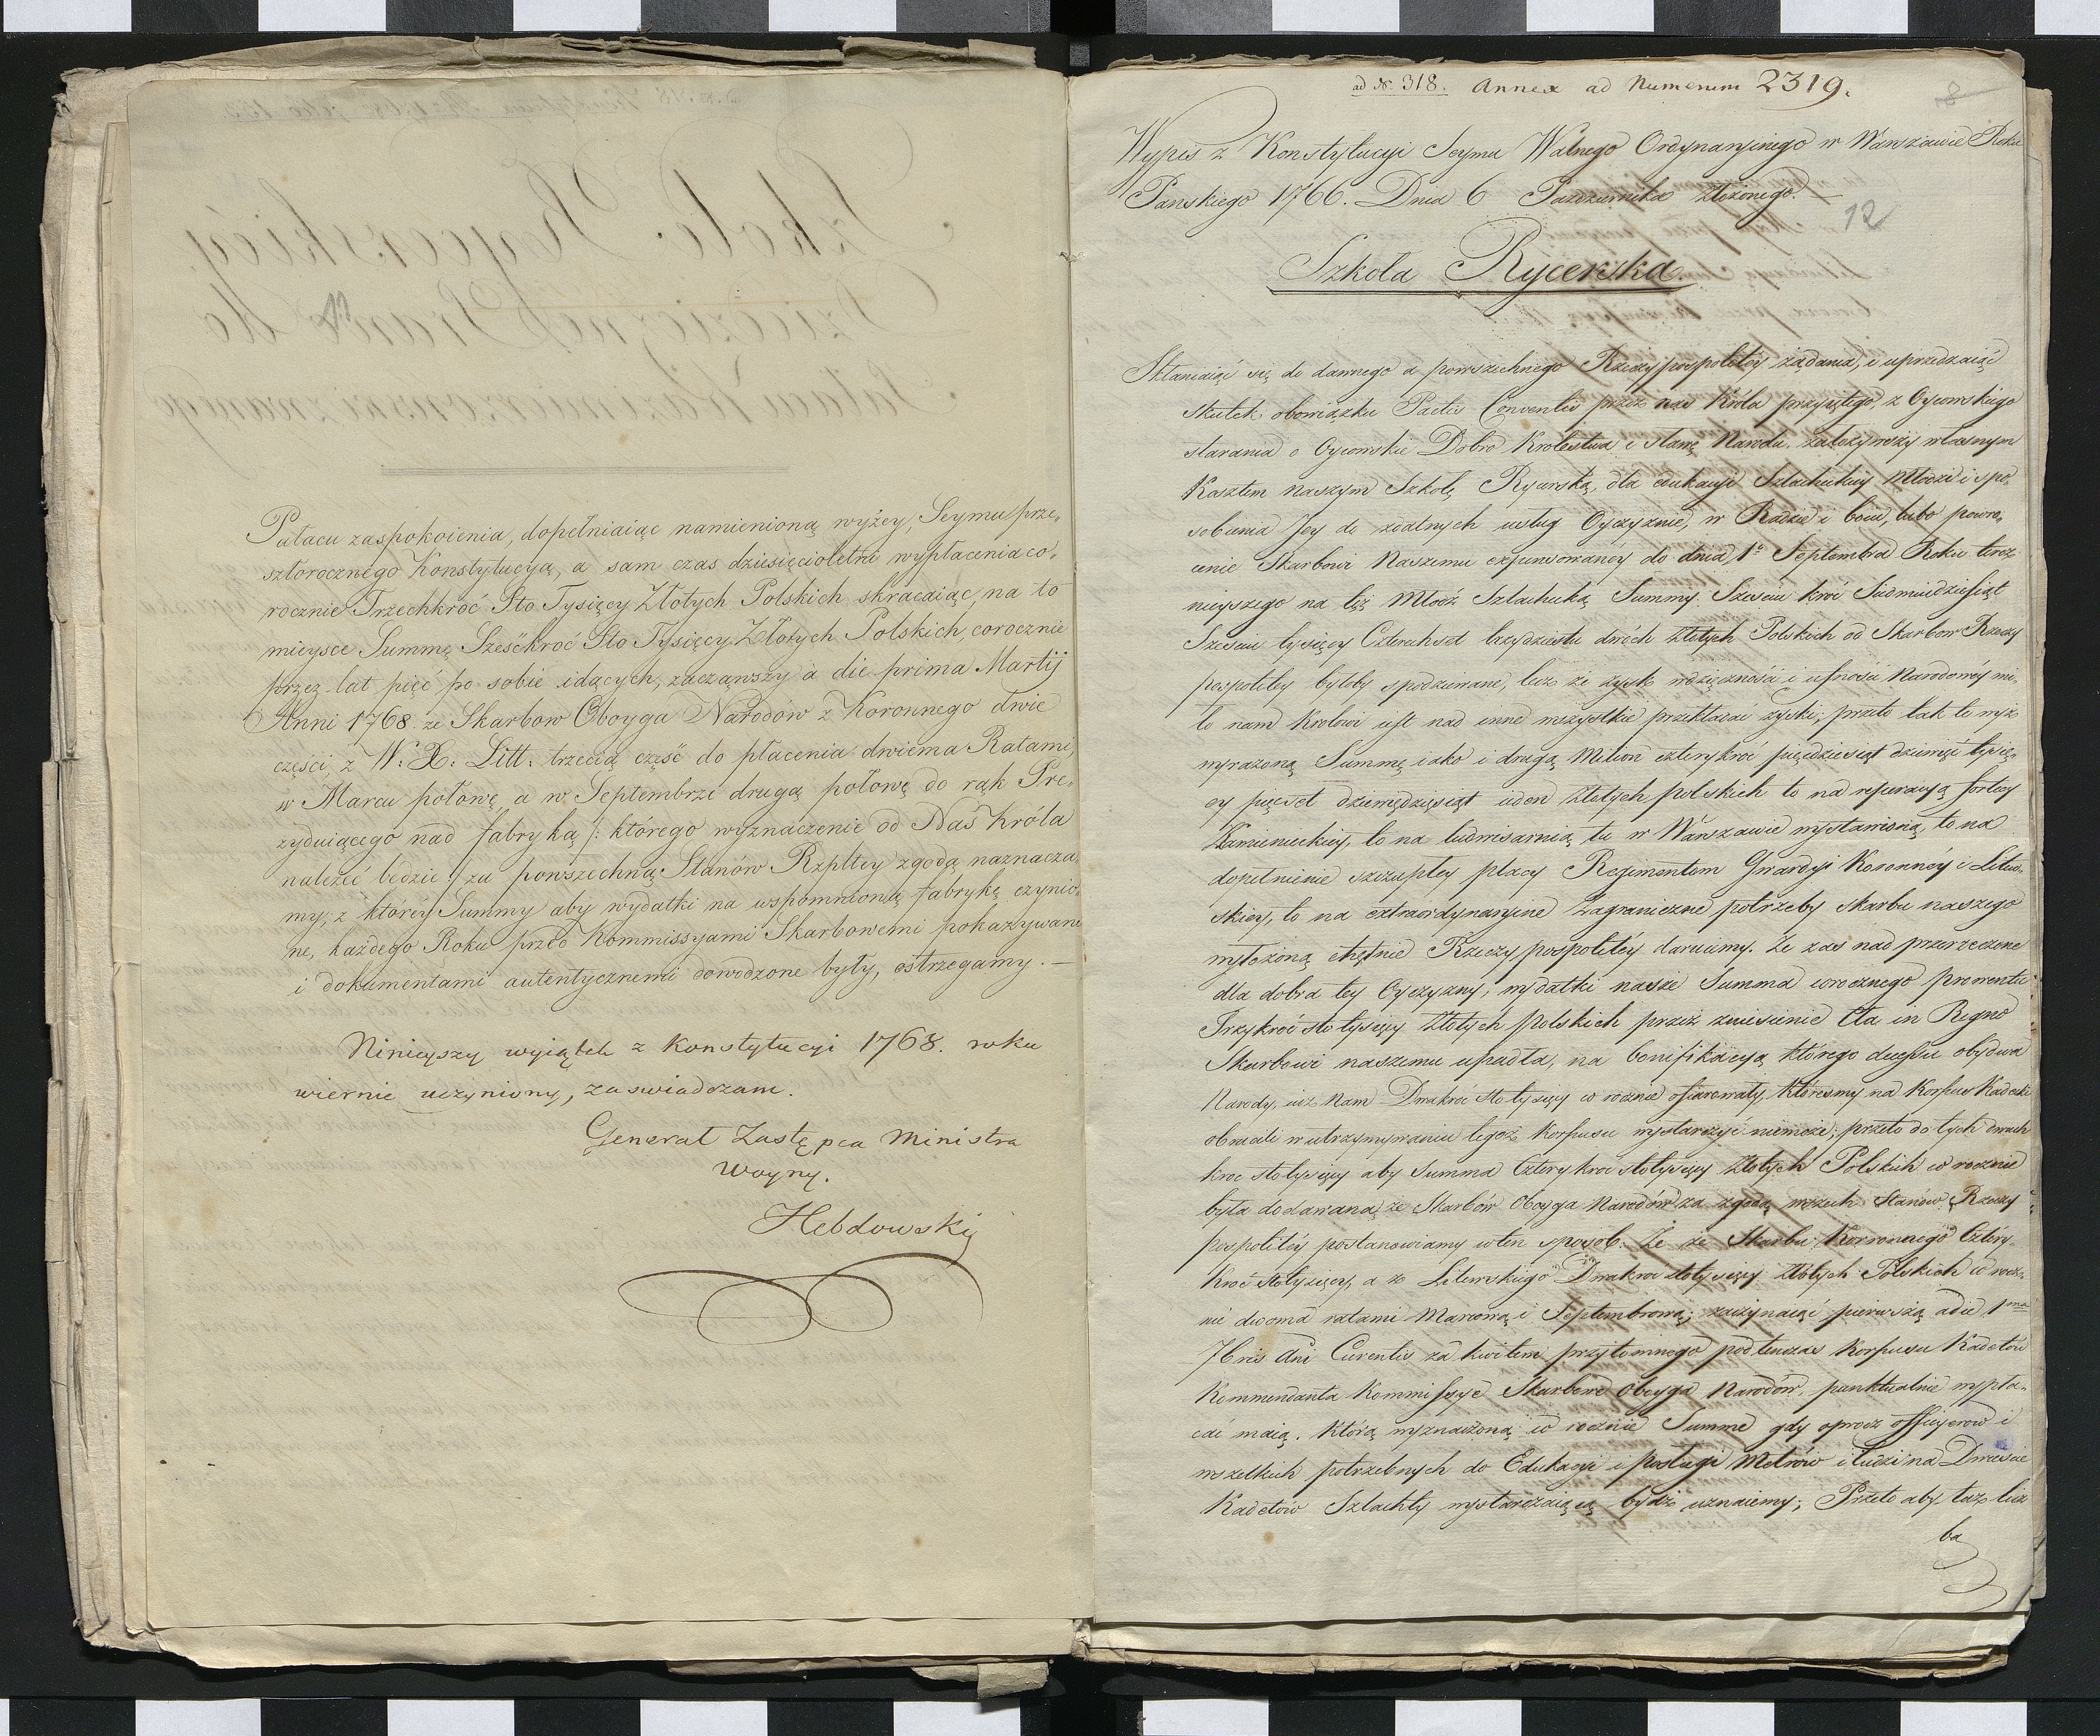 Pałacu zaspokoienia, dopełniaiąc namienioną wyżey, Seymu prze„
szłorocznego Konstytucyą, a sam czas dziesięcioletni wypłacenia co„
rocznie Trzechkroć Sto Tysięcy Złotych Polskich skracaiąc, na to
mieysce Summę Sześćkroć Sto Tysięcy Złotych Polskich, corocznie
przez lat pięć po sobie idących, zacząwszy a die prima Martij
Anni 1768. ze Skarbow Oboyga Narodow z Koronnego dwie
części, z W: X: Litt: trzecią część do płacenia dwiema Ratami,
w Marcu połowę, a w Septembrze drugą połowę do rąk Pre„
zyduiącego nad fabryką /: którego wyznaczenie od Naś Króla
należeć będzie :/ za powszechną Stanów Rzpltey zgodą naznacza„
my; z którey Summy aby wydatki na wspomnioną fabrykę czynio„
ne, każdego Roku przed Kommissyami Skarbowemi pokazywane
i dokumentami autentycznemi dowodzone były, ostrzegamy. —
Ninieyszy wyiątek z Konstytucyi 1768. roku
wiernie uczyniony, zaswiadczam.
Generał Zastępca Ministra
Woyny.
Hebdowski
ad N. 318. Annex ad Numerum 2319.
8
Wypis z Konstytucyi Seymu Walnego Ordynaryinego w Warszawie Roku
Panskiego 1766. Dnia 6 Pazdziernika złożonego. —
12
Szkoła Rycerska.
Skłaniaiąc się do dawnego a powszechnego Rzeczypospolitey żądania, i uprzedzaiąc
skutek obowiązku Pactis Conventis przez nas Króla przyiętego, z Oycowskiego
starania o Oycowskie Dobro Krolestwa i sławę Narodu, założywszy własnym
Kosztem naszym Szkołę Rycerską, dla edukacyi Szlacheckiey Młodzi i spo„
sobienia Jey do zdalnych usług Oyczyznie, w Radzie i boiu, lubo powro„
cenie Skarbowi Naszemu expensowaney do dnia 1º Septembra Roku teraz
nieyszego na tęż Młodź Szlachecką Summy Sześciu kroć Siedmiudziesiąt
Sześciu tysięcy Czterechset trzydziestu dwóch Złotych Polskich od Skarbow Rzeczy
pospolitey byłoby spodziewane, lecz że zysk wdzięczności i ufności Narodowéy mi„
ło nam Krolowi iest nad inne wszystkie przekładać zyski; przeto tak tę wyż
wyrażoną Summę iako i drugą Milion czterykroć pięćdziesiąt dziewięć tysię„
cy pięćset dziewiędziesiąt ieden Złotych polskich to na reparacyą fortecy
Kamienieckiey, to na ludwisarnią tu w Warszawie wystawioną, to na
dopełnienie szczupłey płacy Regimentom Gwardyi Koronnéy i Litew„
skiey, to na extraordynaryine zagraniczne potrzeby skarbu naszego
wyłożoną chętnie Rzeczypospolitéy daruiemy. Że zas nad przerzeczone
dla dobra tey Oyczyzny, wydatki nasze Summa corocznego prowentu
Trzykroć sto tysięcy Złotych polskich przez zniesienie Cła in Regno
Skarbowi naszemu upadła, na bonifikacyą którego decessu obydwa
Narody, iuż Nam Dwakroć sto tysięcy co rocznie ofiarowały, któreśmy na Korpus Kadecki
obrócili w utrzymywaniu tegoż Korpusu wystarczyć niemoże; przeto do tych dwuch
kroc sto tysięcy aby Summa Czterykroc sto tysięcy Złotych Polskich co rocznie
była dodawana, ze Skarbów Oboyga Narodów za zgodą wszech Stanów Rzeczy
pospolitéy postanowiamy w ten sposob. Że ze Skarbu Koronnego Cztéry„
kroć sto tysięcy, a ze Litewskiego Dwakroć sto tysięcy Złotych Polskich co rocz„
nie dwoma ratami Marcową i Septembrową; zaczynaiąc pierwszą a die 1ma
7bris Ani Curentis za kwitem przytomnego podtenczas Korpusu Kadetów
Kommendanta Kommissye Skarbowe oboyga Narodów, punktualnie wypła„
cać maią. Którą wyznaczoną co rocznie Summe gdy oprocz officyerów i
wszelkich potrzebnych do Edukacyi i posługi Metrów i ludzi na Dwieście
Kadetów Szlachty wystarczaiącą bydź uznaiemy; Przeto aby taż licz
ba